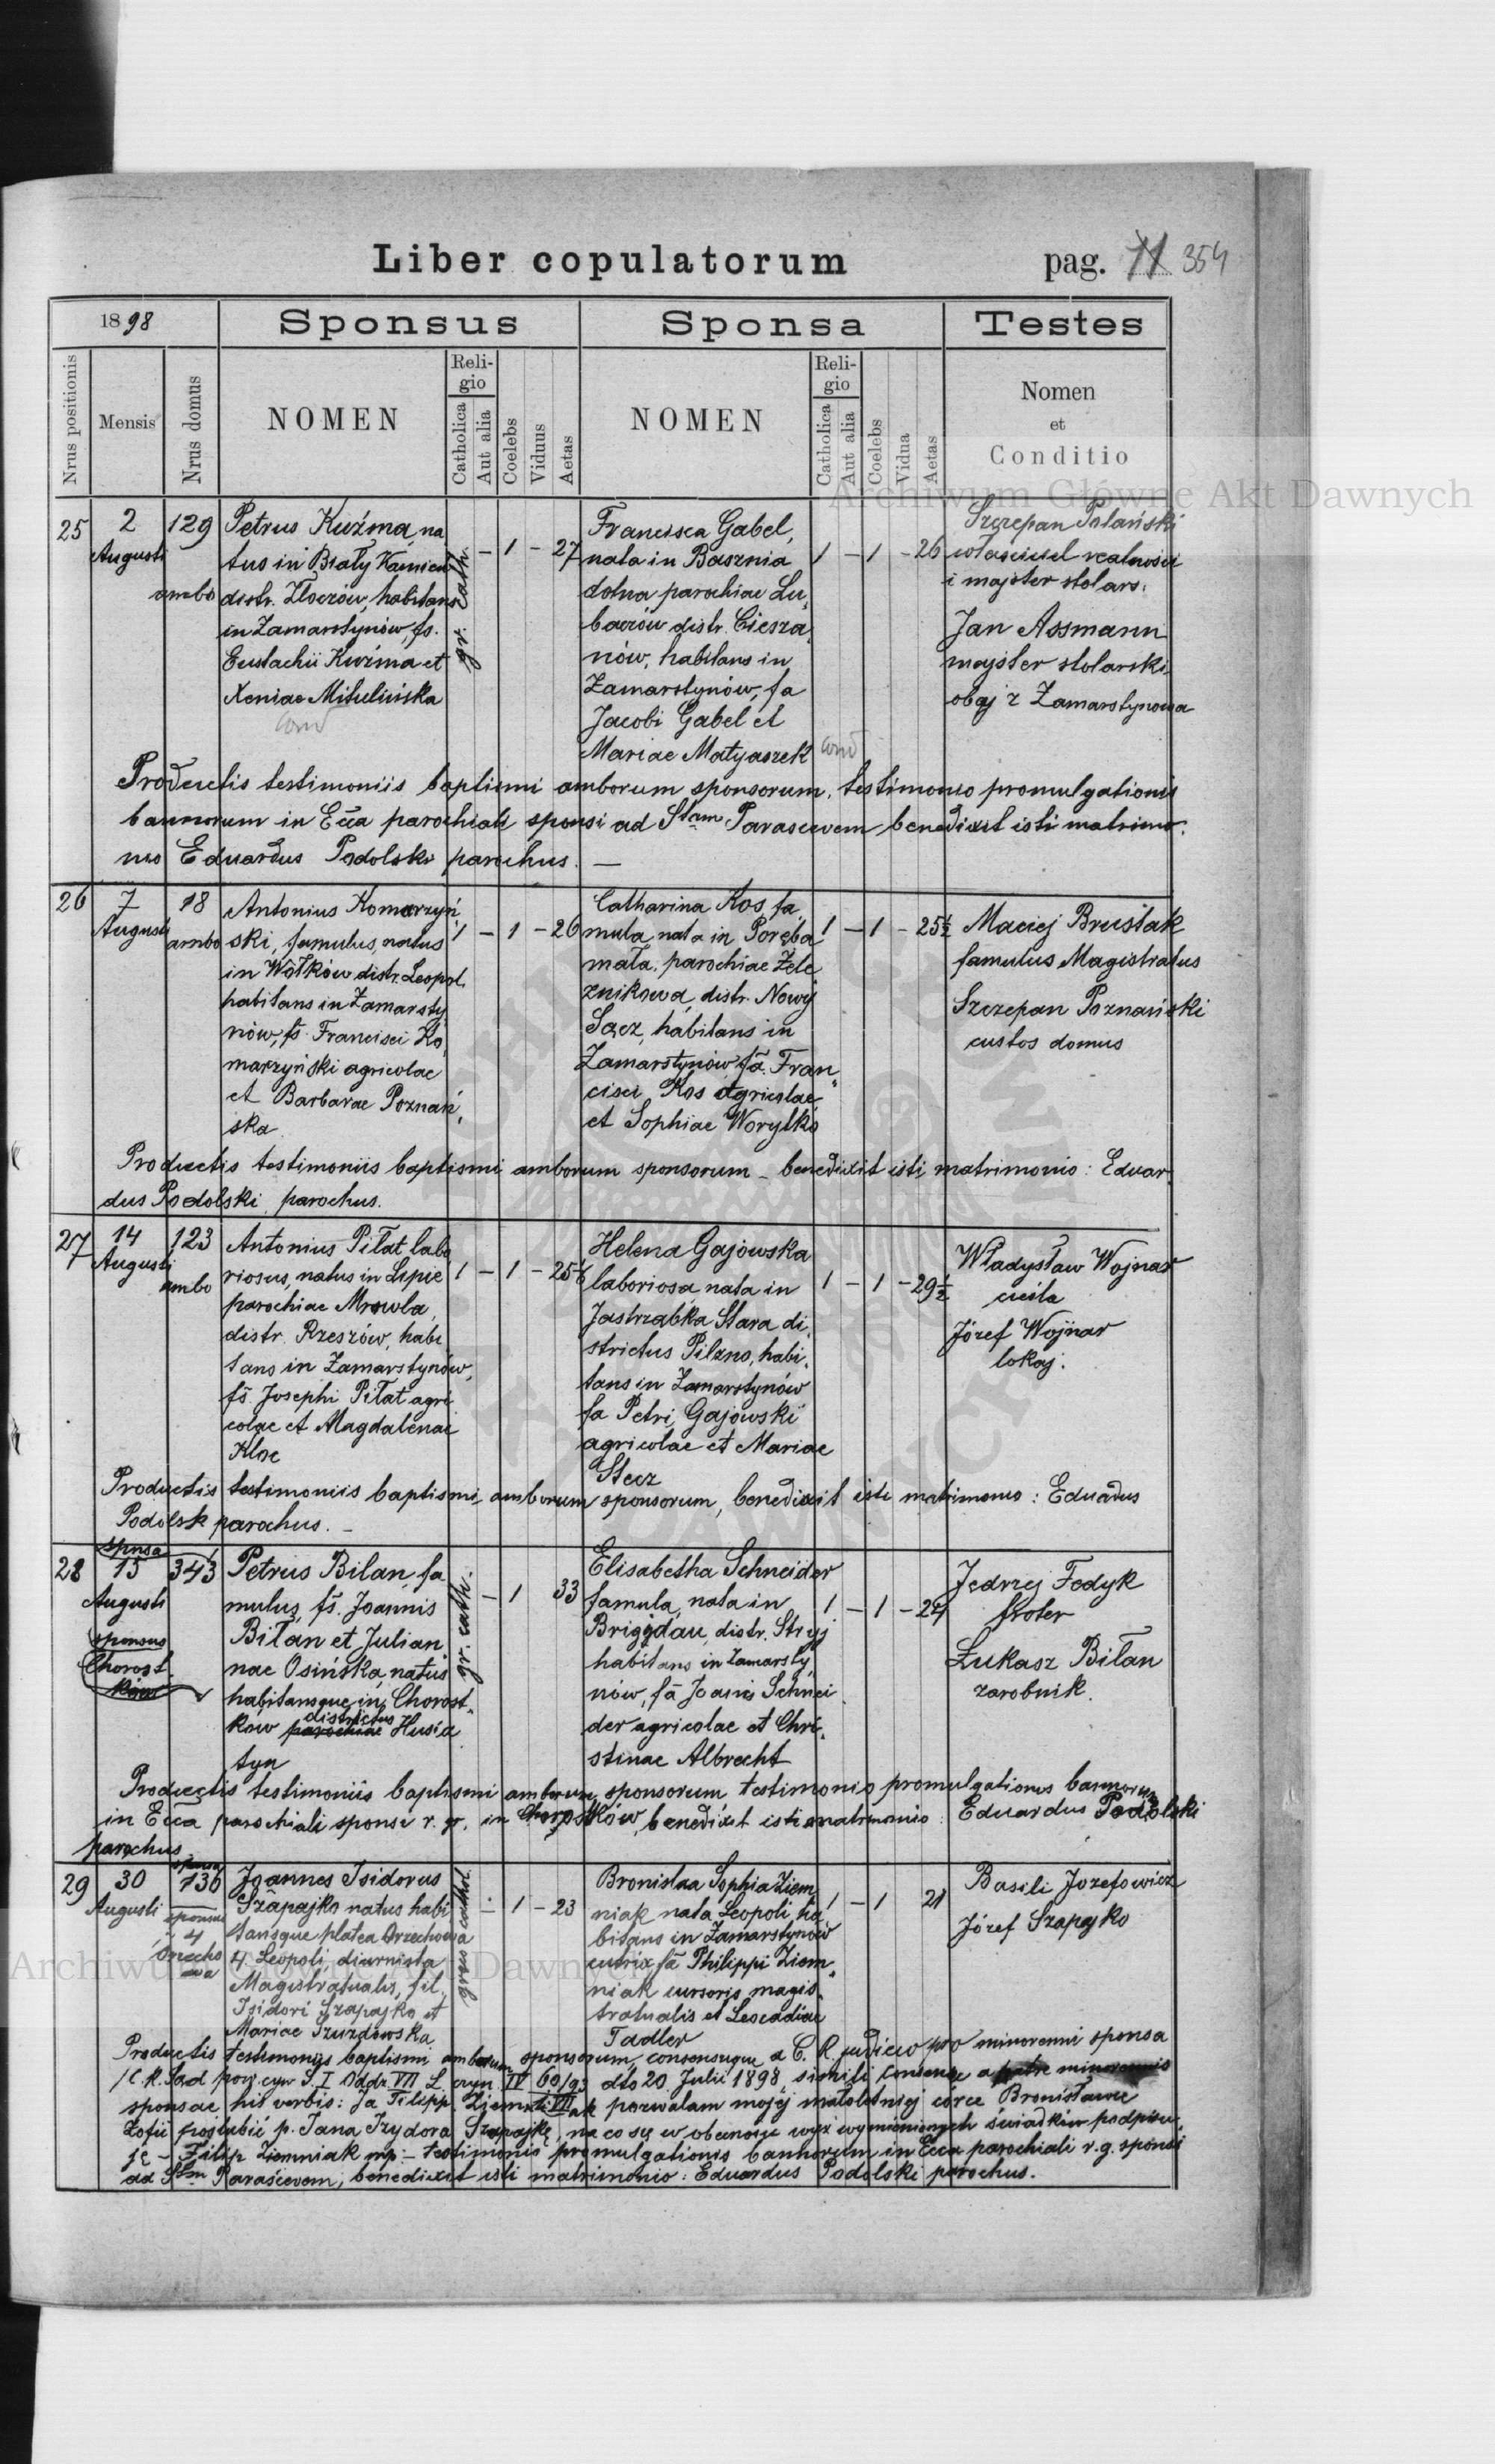 Liber copulatorum
pag. 11 354
1898
Sponsus
Sponsa
Testes
Nrus positionis
Mensis
Nrus domus
NOMEN
Religio
Catholica
Aut alia
Coelebs
Viduus
Aetas
NOMEN
Religio
Catholica
Aut alia
Coelebs
Vidua
Aetas
Nomen
et
Conditio
Archiwum Główne Akt Dawnych
25
2
Augusti
129
ambo
Petrus Kuźma, na
tus in Biały Kamień
distr. Złoczów, habitans
in Zamarstynów, fs.
Eustachii Kuźma et
Xeniae Mitulińska
gr. cath.
– 1 – 27
Francisca Gabel,
nata in Basznia
dolna parochiae Lu„
baczów distr. Ciesza„
nów, habitans in
Zamarstynów, fa
Jacobi Gabel et
Mariae Matyaszek
1 – 1 – 26
Szczepan Polański
właściciel realności
i majster stolars.
Jan Assmann
majster stolarski,
obaj z Zamarstynowa
Productis testimoniis baptismi amborum sponsorum, testimonio promulgationis
bannorum in Ecca parochiali sponsi ad Stam Parascevem benedixit isti matrimo„
nio Eduardus Podolski parochus. —
26
7
Augusti
18
ambo
Antonius Komarzyń„
ski, famulus, natus
in Wołków distr. Leopol.
habitans in Zamarsty
nów, fs. Francisci Ko„
marzyński agricolae
et Barbarae Poznań„
ska
1 – 1 – 26
Catharina Kos fa„
mula, nata in Poręba
mała, parochiae Żele
znikowa, distr. Nowy
Sącz, habitans in
Zamarstynów, fa. Fran„
cisci Kos agricolae
et Sophiae Worytko
1 – 1 – 25½
Maciej Bruśtak
famulus Magistratus
Szczepan Poznański
custos domus
Productis testimoniis baptismi amborum sponsorum – benedixit isti matrimonio: Eduar„
dus Podolski parochus.
27
14
Augusti
123
ambo
Antonius Piłat labo
riosus, natus in Lipie
parochiae Mrowla,
distr. Rzeszów, habi
tans in Zamarstynów,
fs. Josephi Piłat agri
colae et Magdalenae
Kloc
1 – 1 – 25
Helena Gajowska
laboriosa, nata in
Jastrząbka Stara di„
strictus Pilzno, habi„
tans in Zamarstynów
fa Petri Gajowski
agricolae et Mariae
Stecz
1 – 1 – 29½
Władysław Wojnar
cieśla
Józef Wojnar
lokaj.
Productis testimoniis baptismi amborum sponsorum, benedixit isti matrimonio: Eduadus
Podolsk parochus. –
28
sponsa
15
Augusti
343
sponsus
Chorost„
ków
Petrus Bilan, fa
mulus, fs. Joannis
Bilan et Julian„
nae Osińska, natus
habitansque in Chorost„
ków parochiae districtus Husia
tyn
gr. cath.
– 1 33
Elisabetha Schneider
famula, nata in
Brigidau, distr. Stryj
habitans in Zamarsty
nów, fa Joanis Schnei
der agricolae et Chri„
stinae Albrecht
1 – 1 – 24
Jędrzej Fedyk
froter
Łukasz Bilan
zarobnik.
Productis testimoniis baptismi amborum sponsorum testimonio promulgationis bannorum
in Ecca parochiali sponsi r. gr. in Chorostków, benedixit isti matrimonio: Eduardus Podolski
parochus
29
30
Augusti
sponsa
136
sponsus
4
Orzecho
wa
Joannes Isidorus
Szapajko natus habi
tansque platea Orzechowa
4 Leopoli, diurnista
Magistratualis, fil.
Isidori Szapajko et
Mariae Szuzdowska
graeco cathol.
– 1 – 23
Bronislaa Sophia Ziem„
niak nata Leopoli ha
bitans in Zamarstynów
sutrix fa Philippi Ziem„
niak cursoris magis„
tratualis et Leocadiae
Tadler
1 – 1 21
Basili Jozefowicz
Józef Szapajko
Productis testimoniis baptismi amborum sponsorum, consensuque a C. R. judicio pro minorenni sponsa
/C. k. Sąd pow. cyw. S. I Oddz. VII L. czyn. IV 60/93 VII dto 20 Julii 1898, simili consensu a patre minorennis
sponsae his verbis: Ja Filipp Ziemniak pozwalam mojej małoletniej córce Bronisławie
Zofii poślubić p. Jana Izydora Szapajkę, na co się w obecności wyż wymienionych świadków podpisu„
ję – Filip Ziemniak mp. – testimonio promulgationis bannorum in Ecca parochiali r. g. sponsi
ad Stam Parascevem, benedixit isti matrimonio: Eduardus Podolski parochus.
Archiwum Główne Akt Dawnych